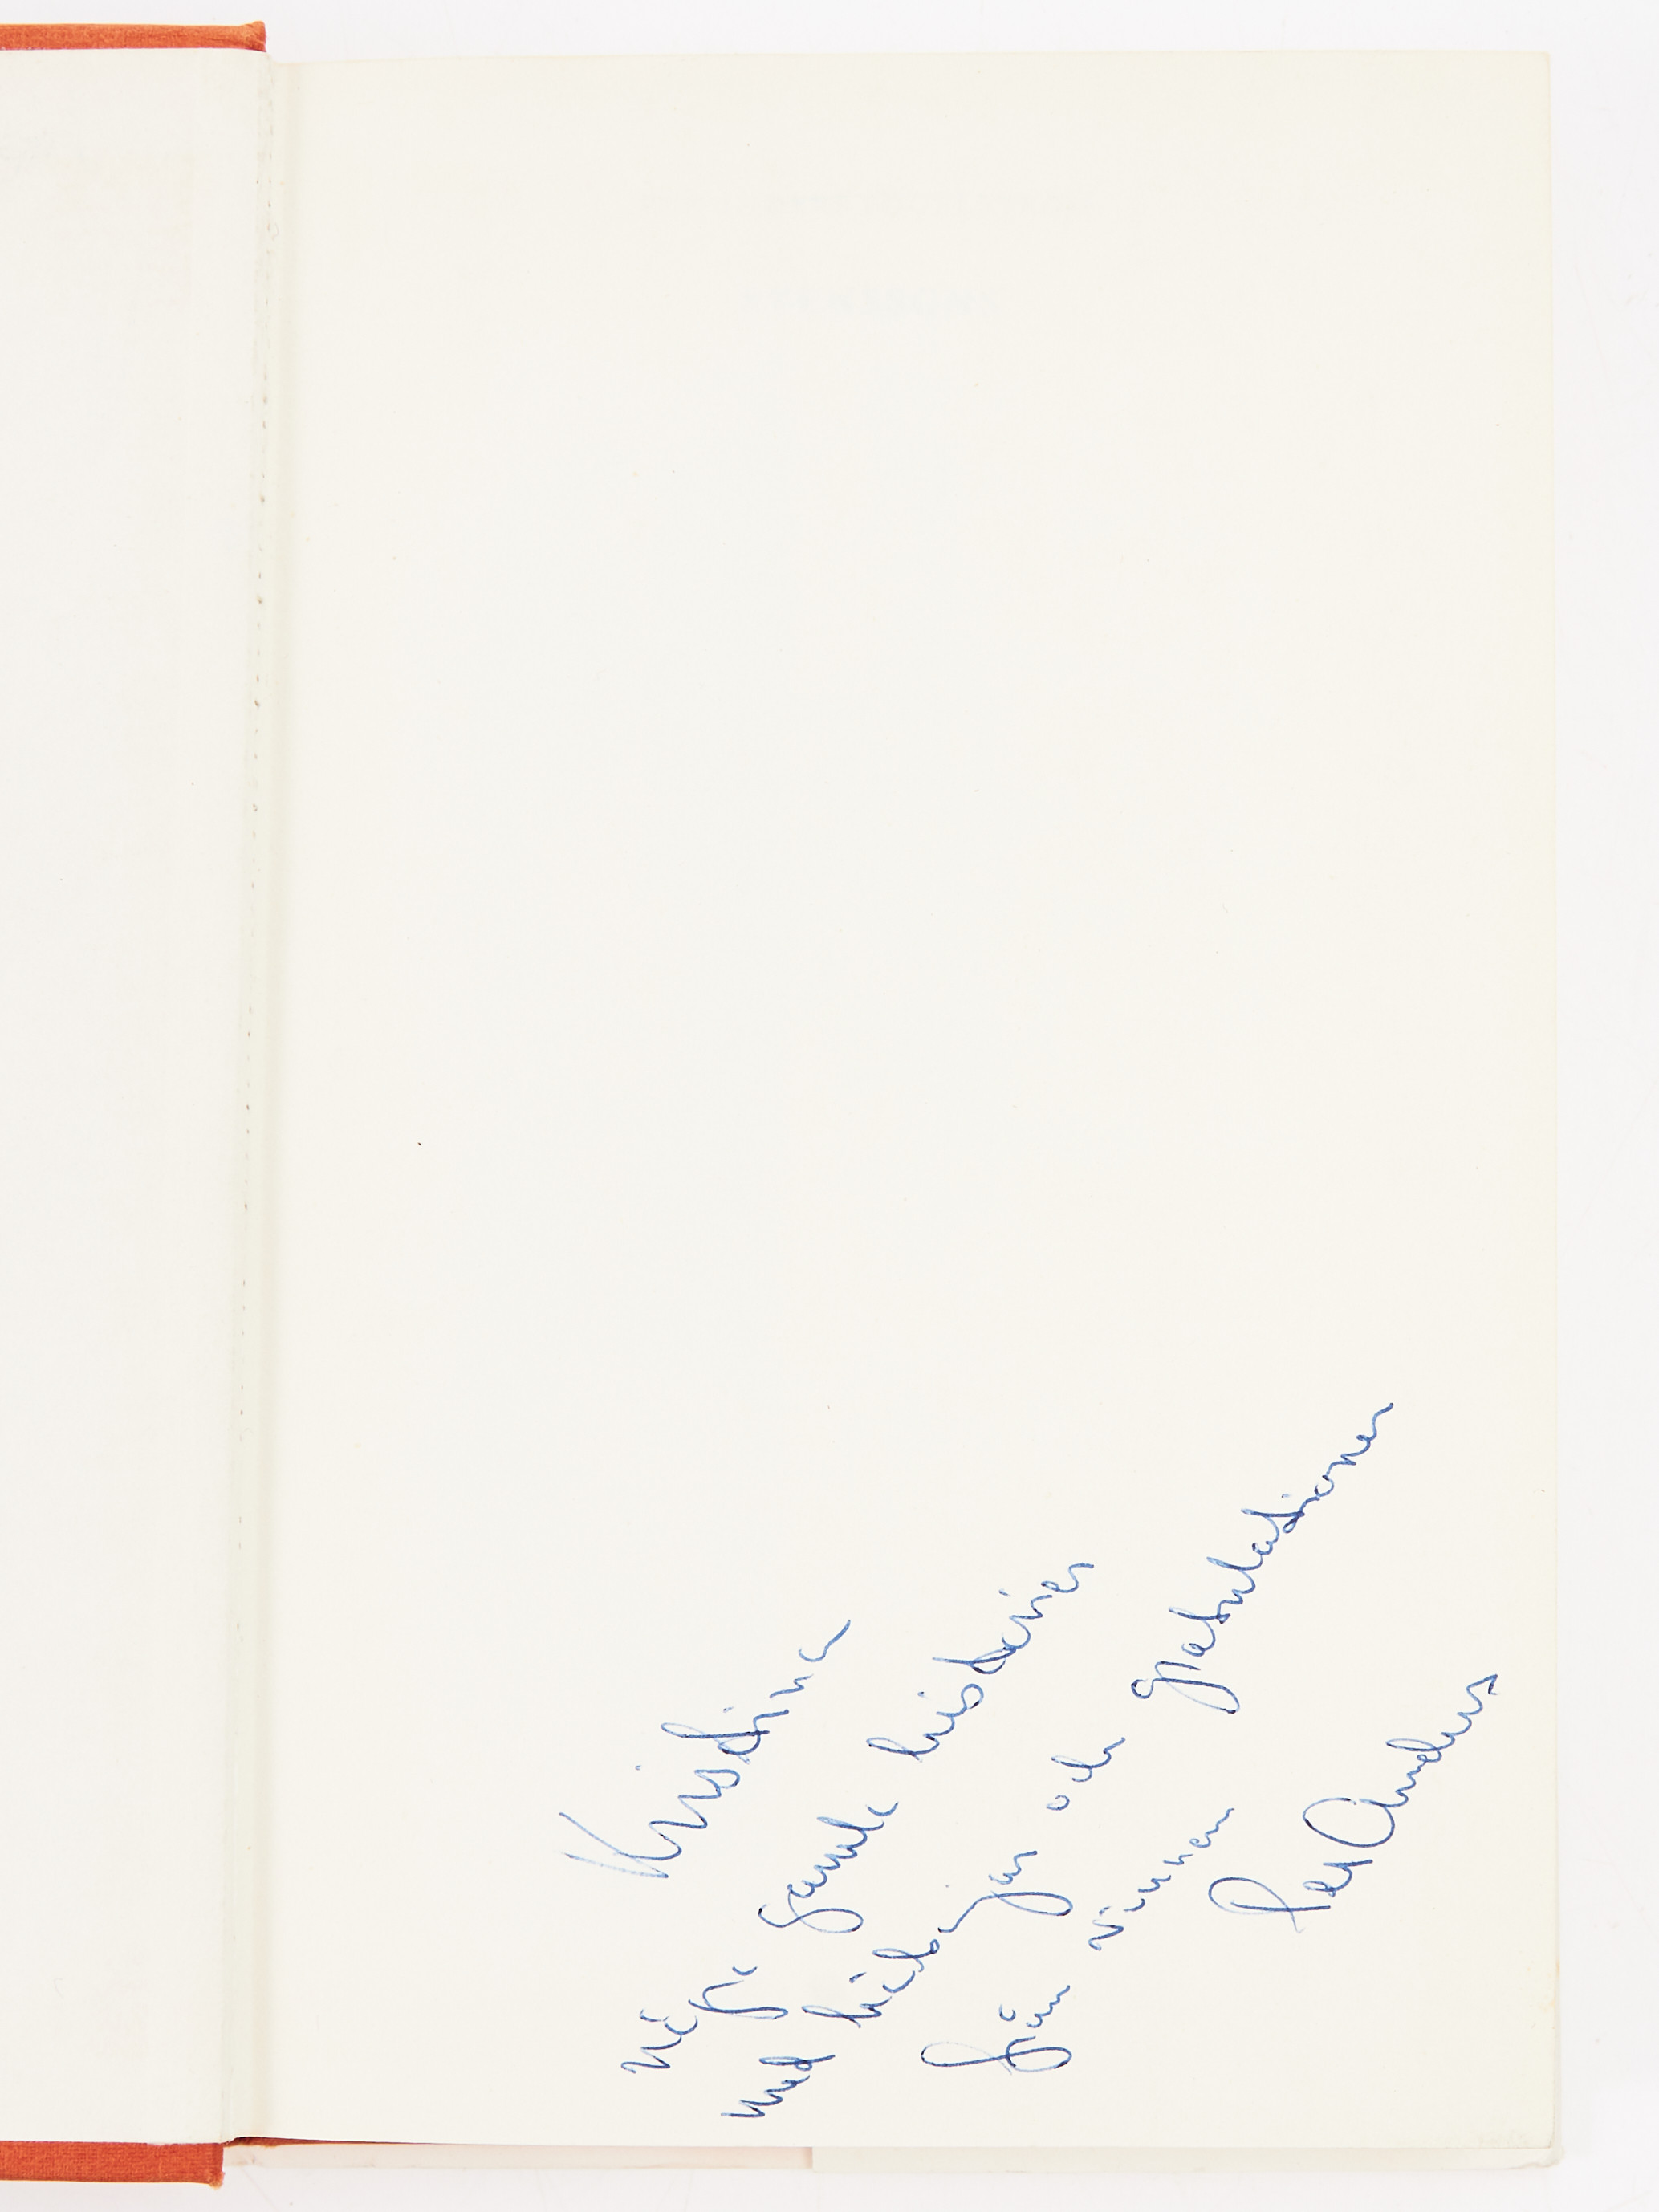 Kristina
Några gamla historier
med hälsningar och gratulationer
från vännen
Per Anders